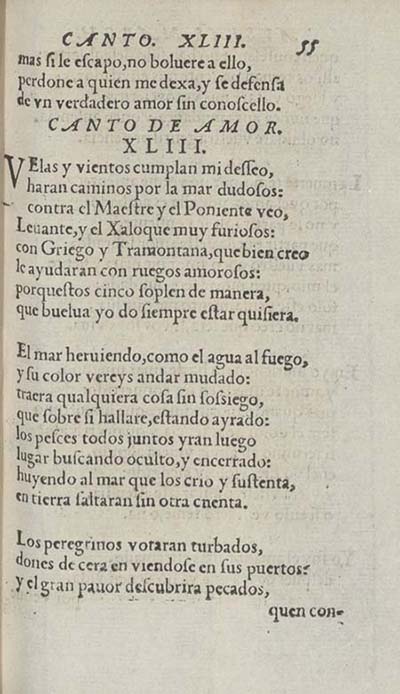 CANTO. XLIII. 55
mas si le escapo, no boluere a ello,
perdone a quien me dexa, y se defensa
de vn verdadero amor sin conoscello.
CANTO DE AMOR.
XLIII.
VElas y vientos cumplan mi desseo,
haran caminos por la mar dudosos:
contra el Maestre y el Poniente veo,
Leuante, y el Xaloque muy furiosos:
con Griego y Tramontana, que bien creo
le ayudaran con ruegos amorosos:
porquestos cinco soplen de manera,
que buelua yo do siempre estar quisiera.
El mar heruiendo, como el agua al fuego,
y su color vereys andar mudado:
traera qualquiera cosa sin sossiego,
que sobre si hallare, estando ayrado:
los pesces todos juntos yran luego
lugar buscando oculto, y encerrado:
huyendo al mar que los crio y sustenta,
en tierra saltaran sin otra cuenta.
Los peregrinos votaran turbados,
dones de cera en viendose en sus puertos:
y el gran pauor descubrira pecados,
quen con-